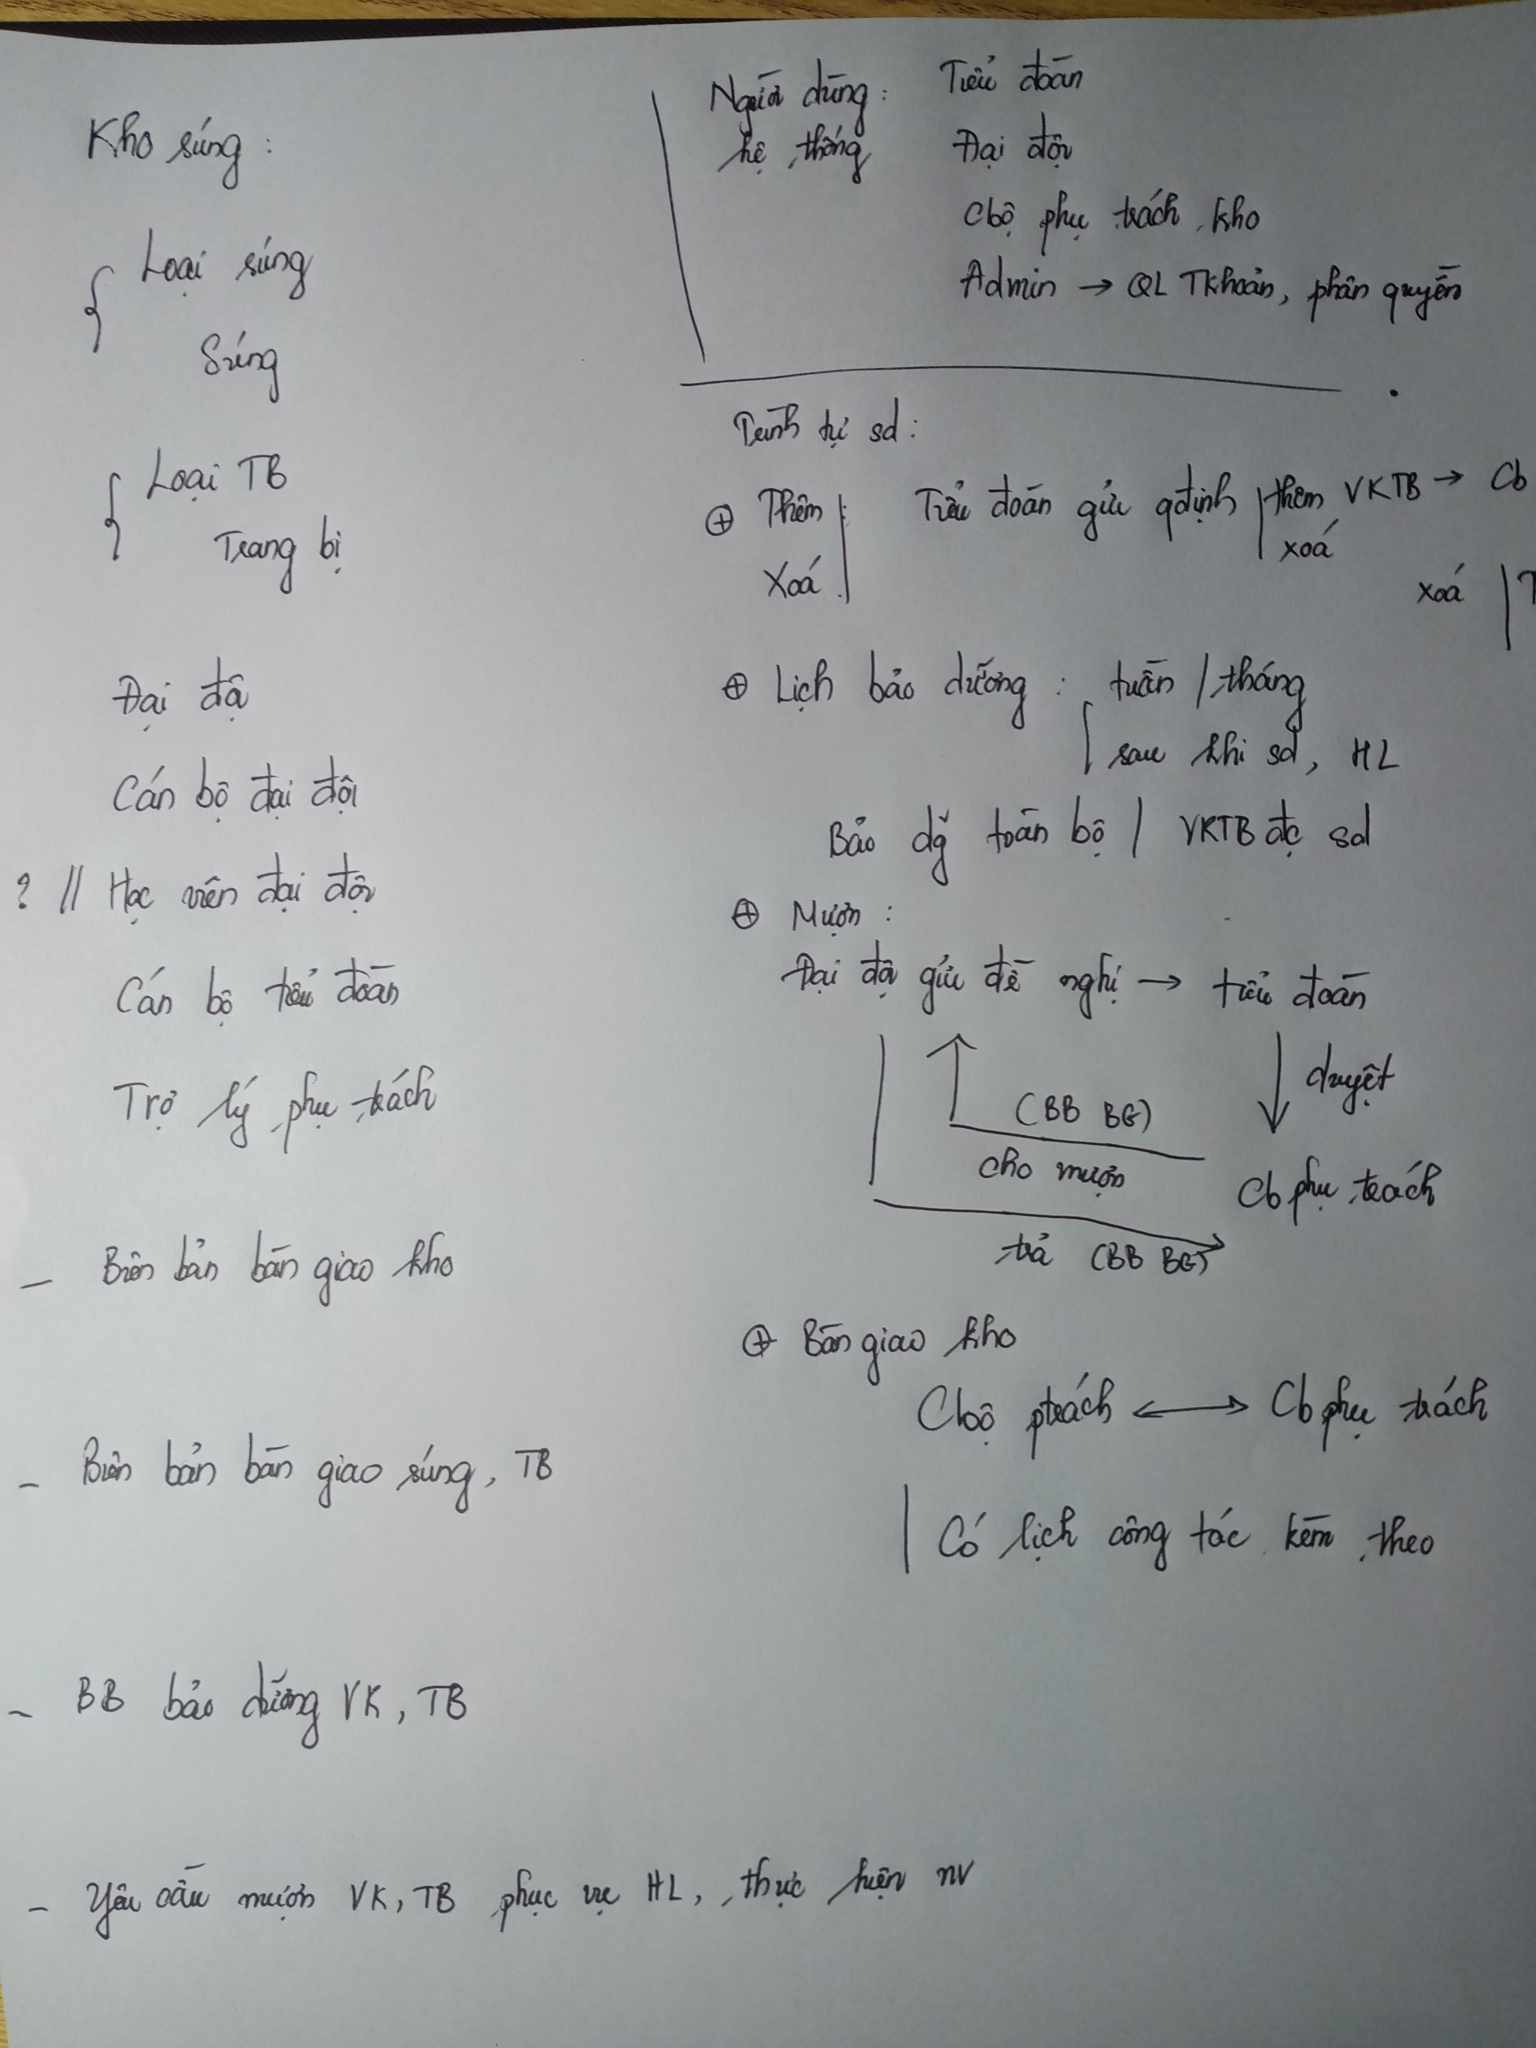 Kho súng :
Loại súng
Súng
Loại TB
Trang bị
Đại đội
Cán bộ đại đội
? // Học viên đại đội
Cán bộ tiểu đoàn
Trợ lý phụ trách
- Biên bản bàn giao kho
- Biên bản bàn giao súng, TB
- BB bảo dưỡng VK, TB
- Yêu cầu mượn VK, TB phục vụ HL, thực hiện nv
Người dùng : Tiểu đoàn
hệ thống Đại đội
Cbộ phụ trách kho
Admin → QL Tkhoản, phân quyền
Trình tự sd :
⊕ Thêm : Tiểu đoàn gửi qđịnh | thêm VKTB → Cb
Xoá xoá
xoá |
⊕ Lịch bảo dưỡng : tuần / tháng
sau khi sd, HL
Bảo dg toàn bộ | VKTB đc sd
⊕ Mượn :
Đại đội gửi đề nghị → tiểu đoàn
duyệt
(BB BG)
cho mượn
Cb phụ trách
trả (BB BG)
⊕ Bàn giao kho
Cbộ ptrách ↔ Cb phụ trách
| Có lịch công tác kèm theo